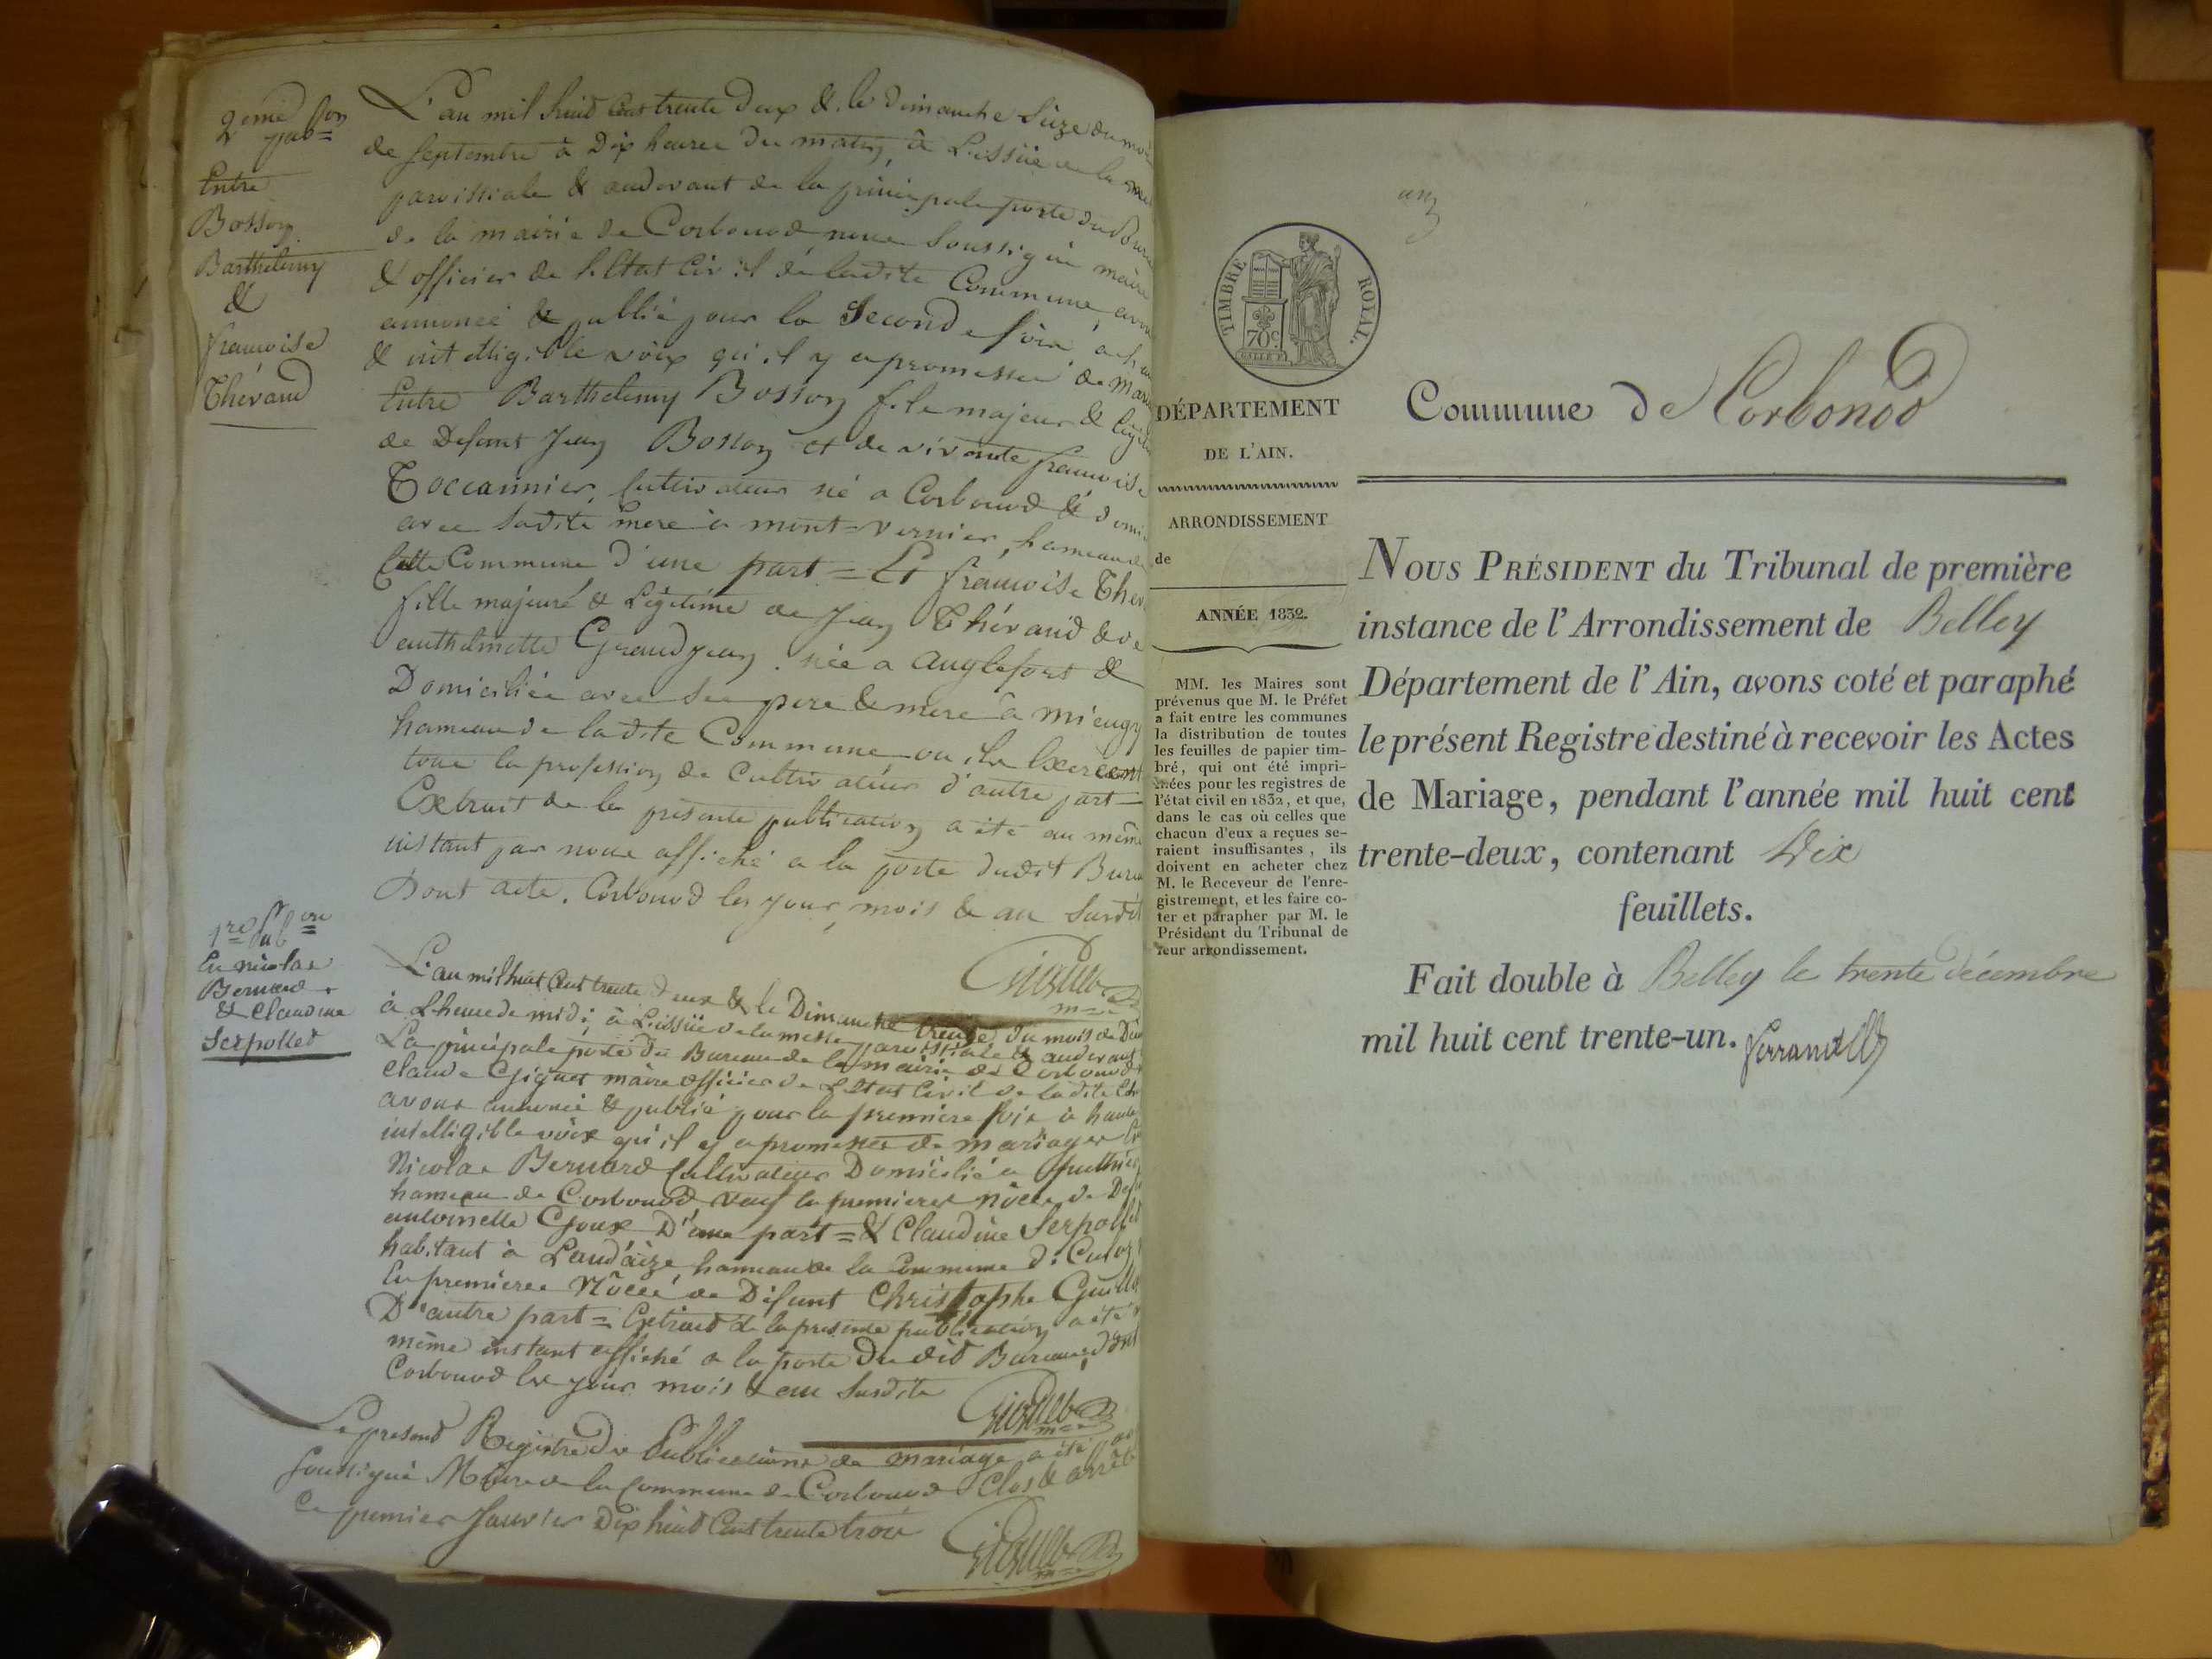 2eme pub=on
Entre
Bosson
Barthelemy
&
françoise
Thévand
L'an mil huit cent trente deux & le dimanche Seize du mois
de Septembre à Dix heures du matin, à L'issüe de la
paroissiale & audevant de la principale porte du Bureau
de la mairie de Corbonod, nous Soussigné maire
& officier de L'Etat Civil de ladite Commune, avons
annoncé & publié pour la Seconde fois, a haute
& intelligible voix qu'il y a promesses de mariage
Entre Barthelemy Bosson fils majeur & Légitime
de Defunt Jean Bosson et de vivante françoise
Toccannier, Cultivateur né a Corbonod &
avec Sadite mere à mont-vernier, hameau de
Cette Commune d'une part = Et françoise
fille majeure & Légitime de Jean Thévand & de
anthelmette Grandjean. née a anglefort &
Domiciliée avec Ses pere & mere à mieugy
hameau de ladite Commune ou ils Exercent
tous la profession de Cultivateur d'autre part =
Extrait de la présente publication a été au même
instant par nous affiché a la porte dudit Bureau
Dont acte. Corbonod les jour, mois & an Susdits
1re pub=on
En nicolas
Bernard
& Claudine
Serpollet
L'an mil huit Cent trente deux & le Dimanche trente du mois de
à L'heure de midi, à L'issüe de la messe paroissiale & audevant
La principale porte du Bureau de la mairie de Corbonod
Claude Giguet maire officier de L'Etat Civil de ladite
avons annoncé & publié pour la première fois à haute
intelligible voix qu'il y a promesses de mariages
Nicolas Bernard Cultivateur Domicilié a
hameau de Corbonod, veuf En premieres nôces de
antoinette Goux D'une part = & Claudine Serpollet
habitant à Landaize hameau de la Commune de Culoz
En premieres Nôces de Défunt Christophe
D'autre part = Extrait de la presente publication a été
même instant affiché a la porte Du dit Bureau, dont
Corbonod les jour mois & an Susdits
Le present Registre de Publications de mariage a été
soussigné Maire de la Commune de Corbonod Clos & arrêté
Ce premier Janvier Dix huit Cent trente trois
un
TIMBRE ROYAL.
70c.
DÉPARTEMENT
DE L'AIN.
ARRONDISSEMENT
de
ANNÉE 1832.
MM. les Maires sont
prévenus que M. le Préfet
a fait entre les communes
la distribution de toutes
les feuilles de papier tim-
bré, qui ont été impri-
mées pour les registres de
l'état civil en 1832, et que,
dans le cas où celles que
chacun d'eux a reçues se-
raient insuffisantes, ils
doivent en acheter chez
M. le Receveur de l'enre-
gistrement, et les faire co-
ter et parapher par M. le
Président du Tribunal de
leur arrondissement.
Commune de Corbonod
NOUS PRÉSIDENT du Tribunal de première
instance de l'Arrondissement de Belley
Département de l'Ain, avons coté et paraphé
le présent Registre destiné à recevoir les Actes
de Mariage, pendant l'année mil huit cent
trente-deux, contenant Dix
feuillets.
Fait double à Belley le trente décembre
mil huit cent trente-un.